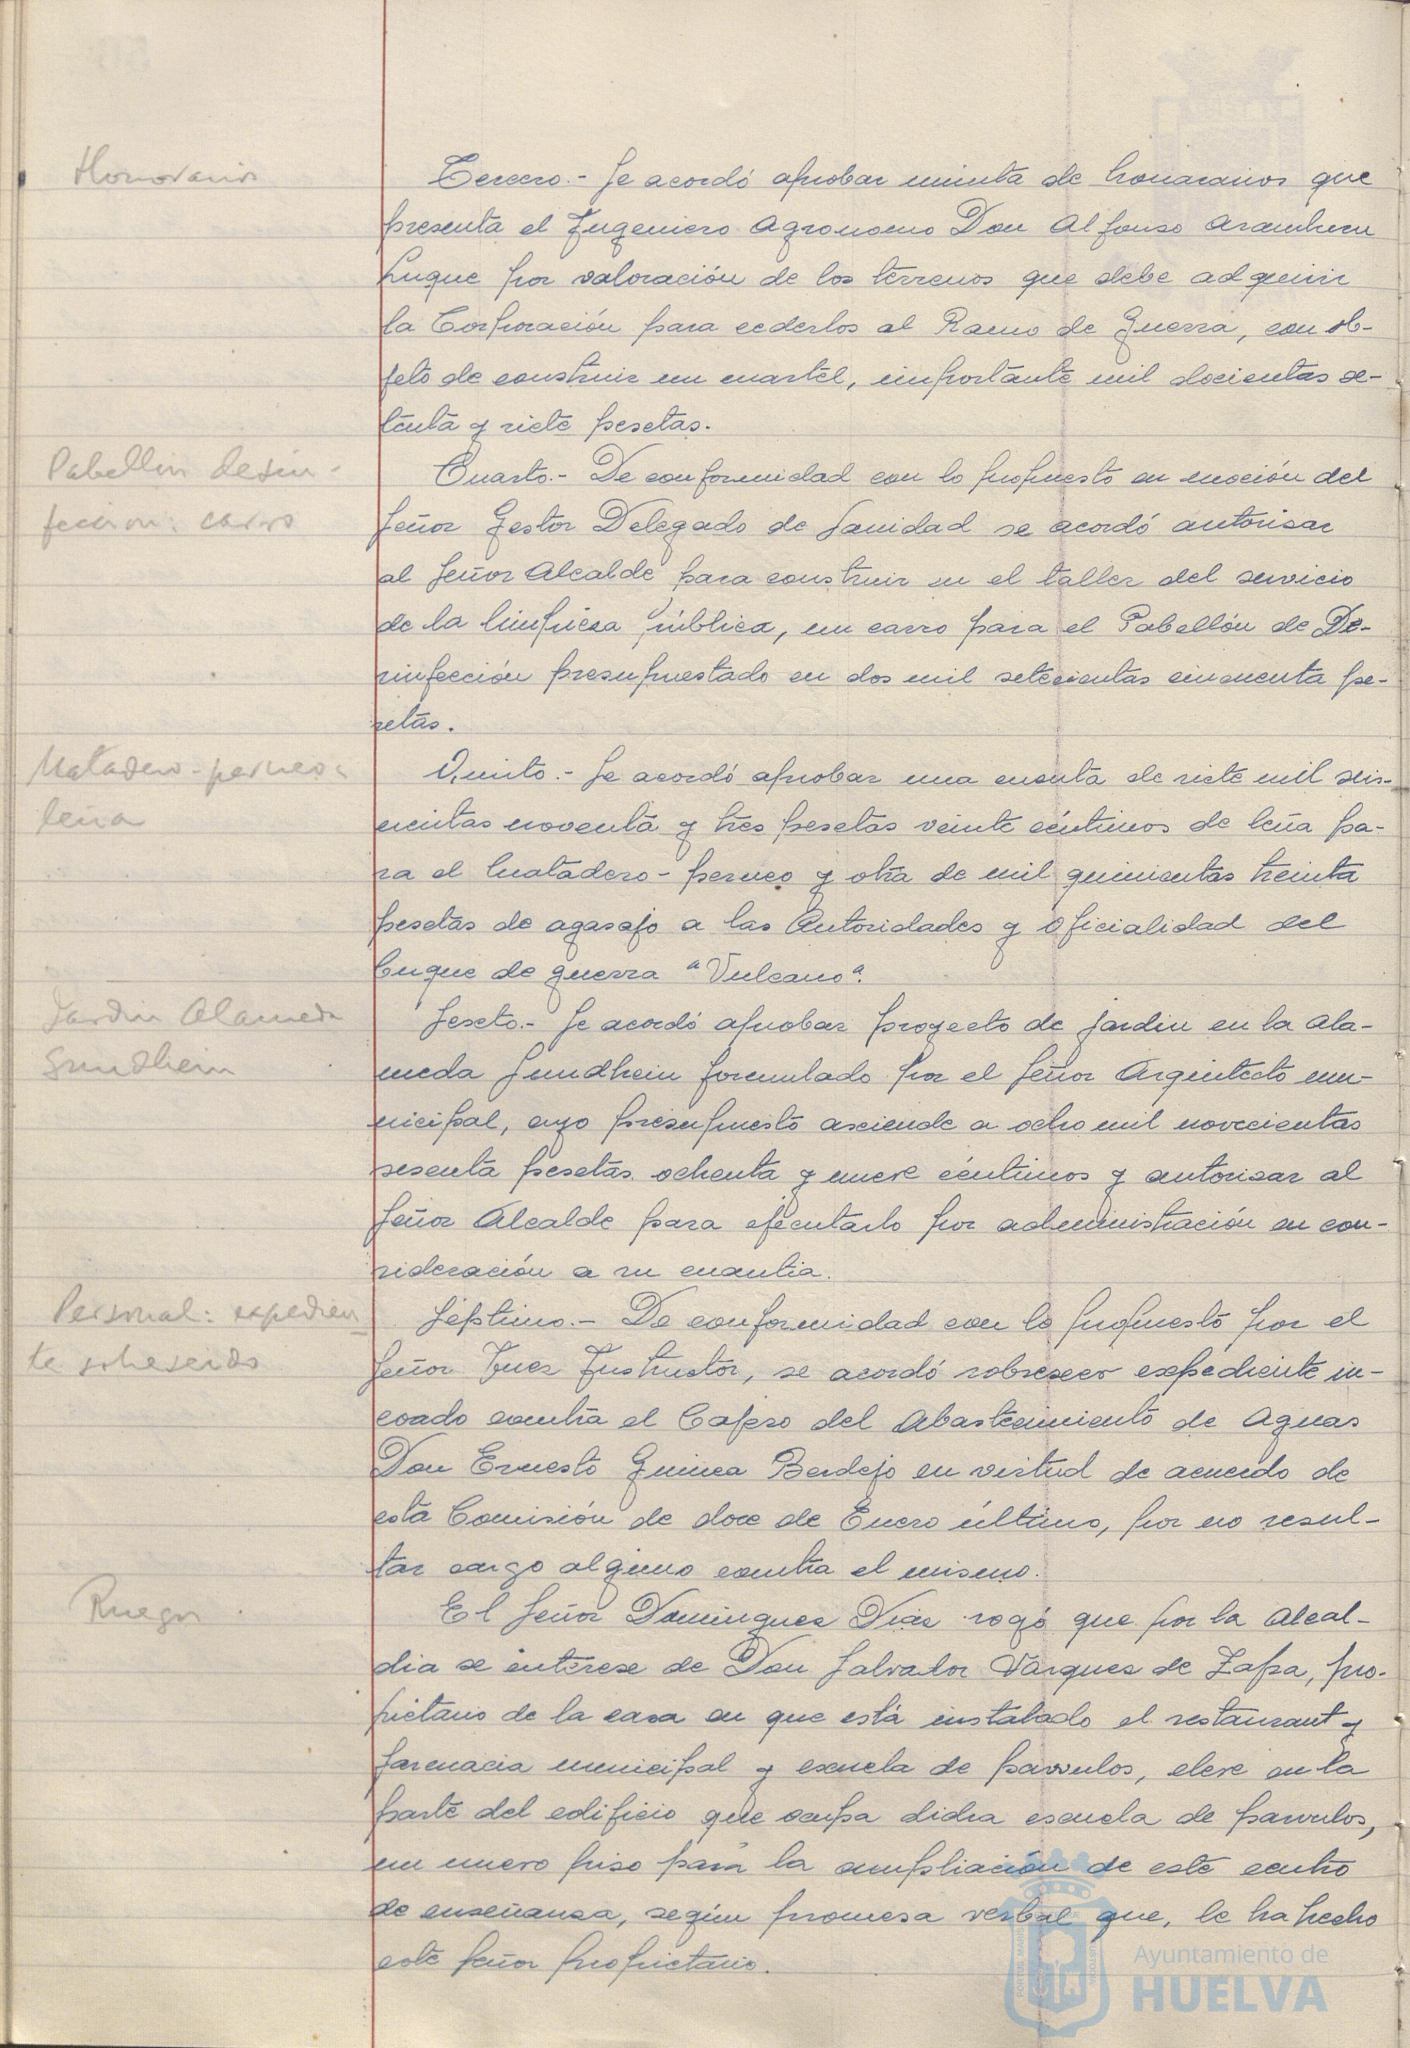 Honorarios
Tercero.- Se acordó aprobar minuta de honorarios que
presenta el Ingeniero Agronomo Don Alfonso Aramburu
Luque por valoración de los terrenos que debe adquirir
la Corporación para cederlos al Ramo de Guerra, con ob-
jeto de construir un cuartel, importante mil docientas se-
tenta y siete pesetas.
Pabellón desin-
fección: carro
Cuarto.- De conformidad con lo propuesto en moción del
Señor Gestor Delegado de Sanidad se acordó autorisar
al Señor Alcalde para construir en el taller del servicio
de la limpieza pública, un carro para el Pabellón de De-
sinfección presupuestado en dos mil setecientas cincuenta pe-
setas.
Matadero-perneo:
leña
Quinto.- Se acordó aprobar una cuenta de siete mil seis-
cientas noventa y tres pesetas veinte céntimos de leña pa-
ra el Matadero-perneo y otra de mil quinientas treinta
pesetas de agasajo a las Autoridades y oficialidad del
buque de guerra "Vulcano".
Jardin Alameda
Sundhein
Sexto.- Se acordó aprobar proyecto de jardin en la Ala-
meda Sundhein formulado por el Señor Arquitecto mu-
nicipal, cuyo presupuesto asciende a ocho mil novecientas
sesenta pesetas ochenta y nueve céntimos y autorisar al
Señor Alcalde para ejecutarlo por administración en con-
sideración a su cuantia.
Personal: expedien
te sobreseido
Séptimo.- De conformidad con lo propuesto por el
Señor Juez Instructor, se acordó sobreseer expediente in-
coado contra el Cajero del Abastecimiento de Aguas
Don Ernesto Guinea Berdejo en virtud de acuerdo de
esta Comisión de doce de Enero último, por no resul-
tar cargo alguno contra el mismo.
Ruegos
El Señor Dominguez Dias rogó que por la Alcal-
dia se interese de Don Salvador Vazquez de Zafra, pro-
pietario de la casa en que está instalado el restaurant y
farmacia municipal y escuela de parvulos, eleve en la
parte del edificio que ocupa dicha escuela de parvulos,
un nuevo piso para la ampliación de este centro
de enseñansa, según promesa verbal que, le ha hecho
este Señor propietario.
Ayuntamiento de
HUELVA